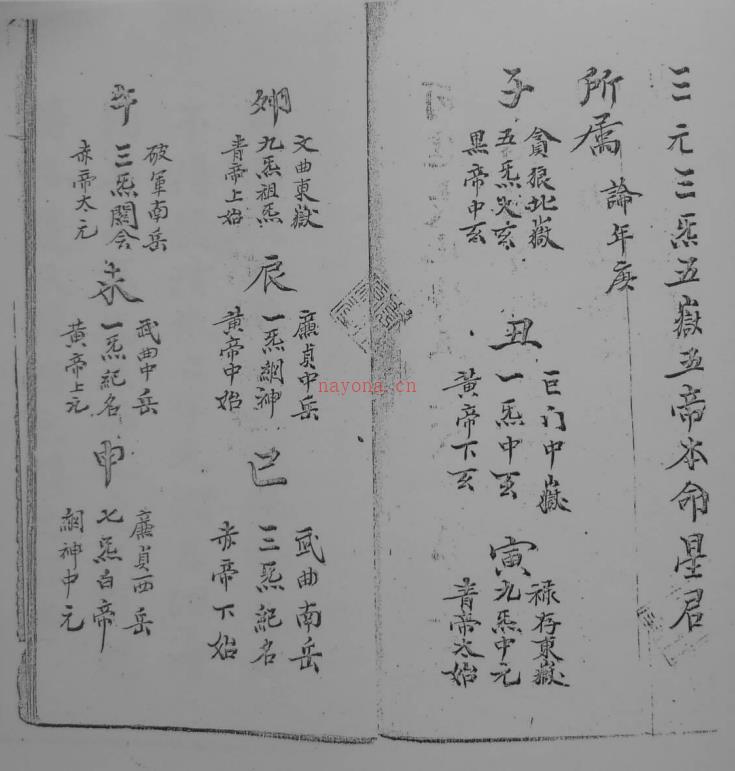 三元三炁五嶽五帝本命星君
所属論年庚
子
貪狼北嶽
五炁太玄
黑帝中玄
丑
巨门中嶽
一炁中玄
黃帝下玄
寅
禄存東嶽
九炁中元
青帝太始
卯
文曲東嶽
九炁祖炁
青帝上始
辰
廉貞中岳
一炁綱神
黃帝中始
巳
武曲南岳
三炁紀名
赤帝下始
午
破軍南岳
三炁閣合
赤帝太元
未
武曲中岳
一炁紀名
黃帝上元
申
廉貞西岳
七炁白帝
綱神中元
nayona.cn